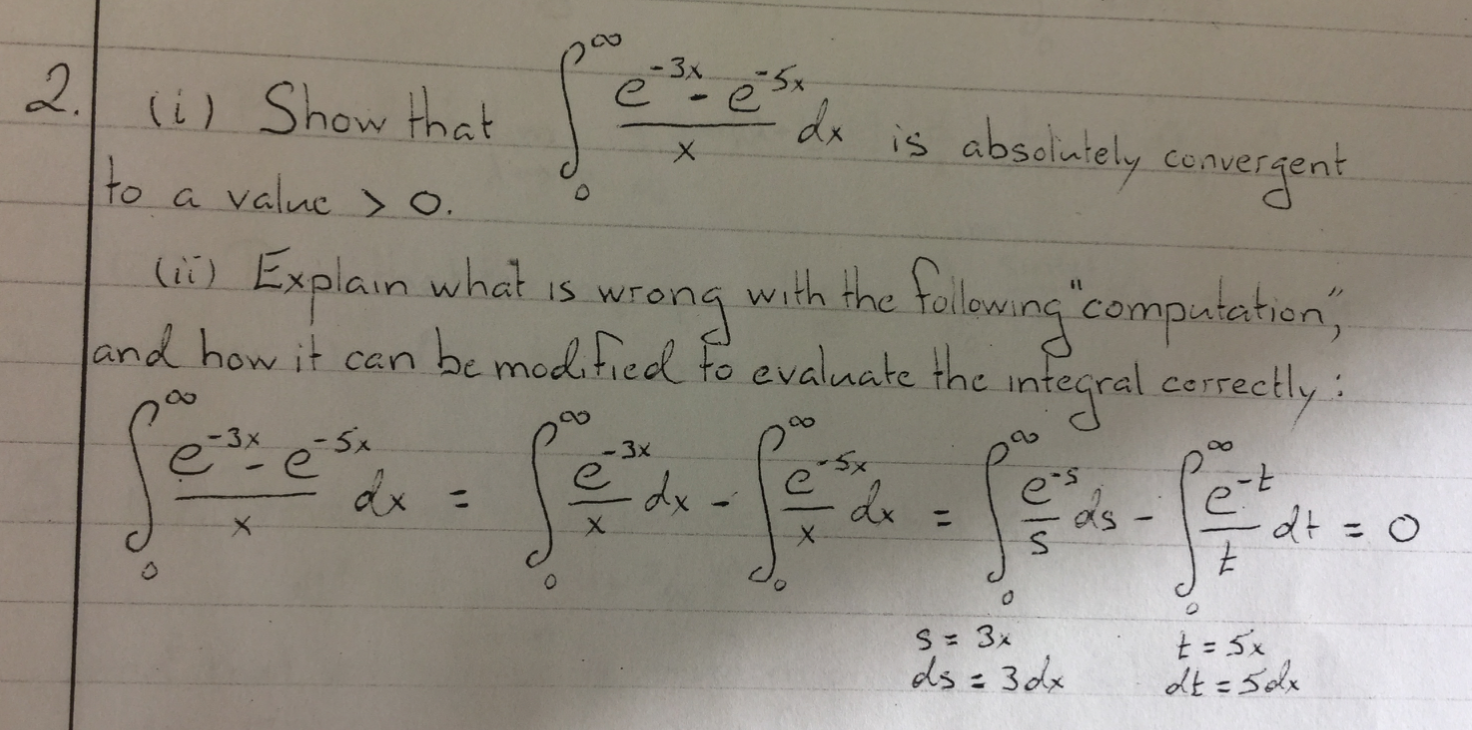 2. (i) Show that ∫₀^∞ (e^{-3x} - e^{-5x})/x dx is absolutely convergent
to a value > 0.
(ii) Explain what is wrong with the following "computation,"
and how it can be modified to evaluate the integral correctly:
∫₀^∞ (e^{-3x} - e^{-5x})/x dx = ∫₀^∞ e^{-3x}/x dx - ∫₀^∞ e^{-5x}/x dx = ∫₀^∞ e^{-s}/s ds - ∫₀^∞ e^{-t}/t dt = 0
s = 3x t = 5x
ds = 3dx dt = 5dx